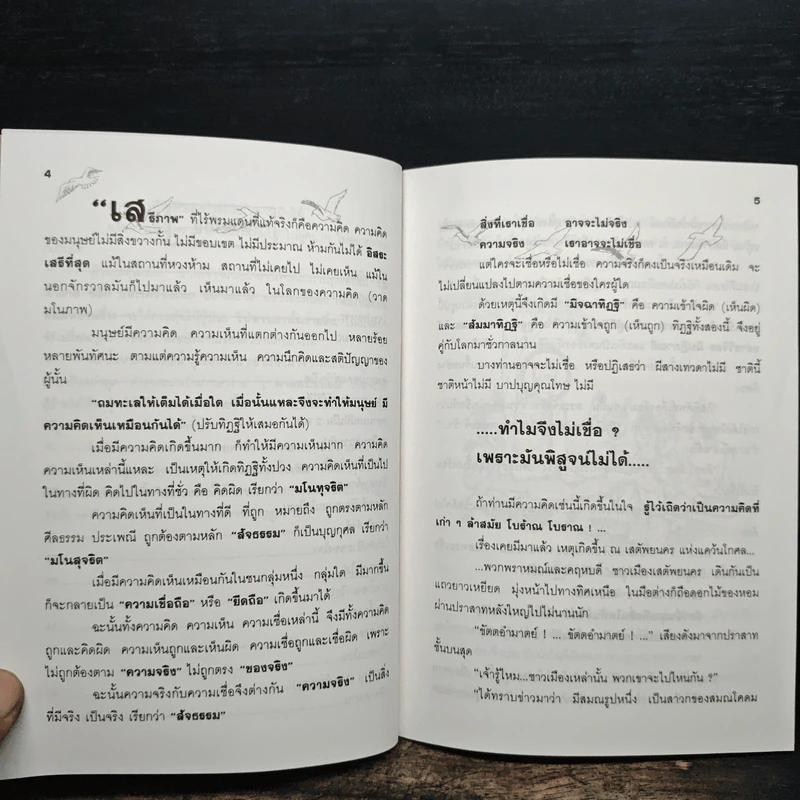 4
"เสรีภาพ" ที่ไร้พรมแดนที่แท้จริงก็คือความคิด ความคิด
ของมนุษย์ไม่มีสิ่งขวางกั้น ไม่มีขอบเขต ไม่มีประมาณ ห้ามกันไม่ได้ อิสระ
เสรีที่สุด แม้ในสถานที่หวงห้าม สถานที่ไม่เคยไป ไม่เคยเห็น แม้ใน
นอกจักรวาลมันก็ไปมาแล้ว เห็นมาแล้ว ในโลกของความคิด (วาด
มโนภาพ)
มนุษย์มีความคิด ความเห็นที่แตกต่างกันออกไป หลายร้อย
หลายพันทัศนะ ตามแต่ความรู้ความเห็น ความนึกคิดและสติปัญญาของ
ผู้นั้น
"ถมทะเลให้เต็มได้เมื่อใด เมื่อนั้นแหละจึงจะทำให้มนุษย์ มี
ความคิดเห็นเหมือนกันได้" (ปรับทิฏฐิให้เสมอกันได้)
เมื่อมีความคิดเกิดขึ้นมาก ก็ทำให้มีความเห็นมาก ความคิด
ความเห็นเหล่านี้แหละ เป็นเหตุให้เกิดทิฏฐิทั้งปวง ความคิดเห็นที่เป็นไป
ในทางที่ผิด คิดไปในทางที่ชั่ว คือ คิดผิด เรียกว่า "มโนทุจริต"
ความคิดเห็นที่เป็นในทางที่ดี ที่ถูก หมายถึง ถูกตรงตามหลัก
ศีลธรรม ประเพณี ถูกต้องตามหลัก "สัจธรรม" ก็เป็นบุญกุศล เรียกว่า
"มโนสุจริต"
เมื่อมีความคิดเห็นเหมือนกันในชนกลุ่มหนึ่ง กลุ่มใด มีมากขึ้น
ก็จะกลายเป็น "ความเชื่อถือ" หรือ "ยึดถือ" เกิดขึ้นมาได้
ฉะนั้นทั้งความคิด ความเห็น ความเชื่อเหล่านี้ จึงมีทั้งความคิด
ถูกและคิดผิด ความเห็นถูกและเห็นผิด ความเชื่อถูกและเชื่อผิด เพราะ
ไม่ถูกต้องตาม "ความจริง" ไม่ถูกตรง "ของจริง"
ฉะนั้นความจริงกับความเชื่อจึงต่างกัน "ความจริง" เป็นสิ่ง
ที่มีจริง เป็นจริง เรียกว่า "สัจธรรม"
5
สิ่งที่เราเชื่อ อาจจะไม่จริง
ความจริง เราอาจจะไม่เชื่อ
แต่ใครจะเชื่อหรือไม่เชื่อ ความจริงก็คงเป็นจริงเหมือนเดิม จะ
ไม่เปลี่ยนแปลงไปตามความเชื่อของใครผู้ใด
ด้วยเหตุนี้จึงเกิดมี "มิจฉาทิฏฐิ" คือ ความเข้าใจผิด (เห็นผิด)
และ "สัมมาทิฏฐิ" คือ ความเข้าใจถูก (เห็นถูก) ทิฏฐิทั้งสองนี้ จึงอยู่
คู่กับโลกมาชั่วกาลนาน
บางท่านอาจจะไม่เชื่อ หรือปฏิเสธว่า ผีสางเทวดาไม่มี ชาตินี้
ชาติหน้าไม่มี บาปบุญคุณโทษ ไม่มี
.....ทำไมจึงไม่เชื่อ ?
เพราะมันพิสูจน์ไม่ได้.....
ถ้าท่านมีความคิดเช่นนี้เกิดขึ้นในใจ รู้ไว้เถิดว่าเป็นความคิดที่
เก่า ๆ ล้าสมัย โบร๊าณ โบราณ ! ...
เรื่องเคยมีมาแล้ว เหตุเกิดขึ้น ณ เสตัพยนคร แห่งแคว้นโกศล...
...พวกพราหมณ์และคฤหบดี ชาวเมืองเสตัพยนคร เดินกันเป็น
แถวยาวเหยียด มุ่งหน้าไปทางทิศเหนือ ในมือต่างก็ถือดอกไม้ของหอม
ผ่านปราสาทหลังใหญ่ไปไม่นานนัก
"ขัตตอำมาตย์ ! ... ขัตตอำมาตย์ ! ..." เสียงดังมาจากปราสาท
ชั้นบนสุด
"เจ้ารู้ไหม...ชาวเมืองเหล่านั้น พวกเขาจะไปไหนกัน ?"
"ได้ทราบข่าวมาว่า มีสมณรูปหนึ่ง เป็นสาวกของสมณโคดม